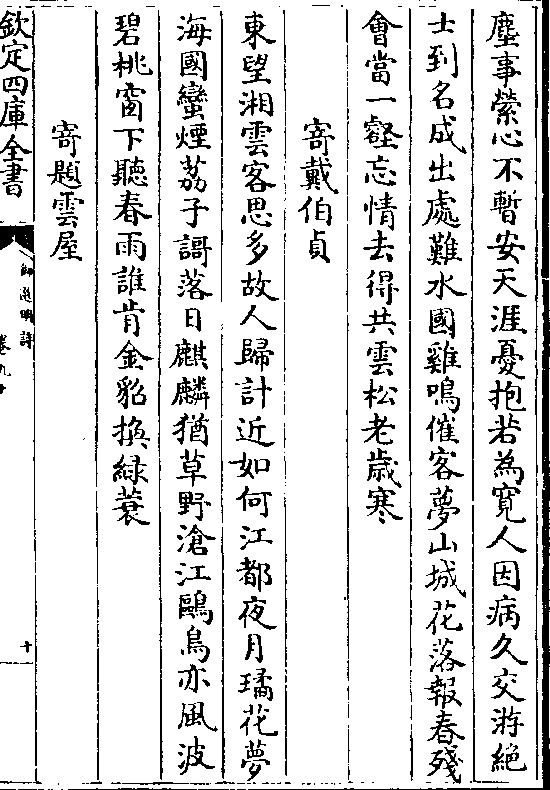 塵事縈心不暫安天涯憂抱若為寛人因病久交游絶
士到名成出處難水國雞鳴催客夢山城花落報春殘
會當一壑忘情去得共雲松老歳寒
寄戴伯貞
東望湘雲客思多故人歸計近如何江都夜月璚花夢
海國蠻煙荔子謌落日麒麟猶草野滄江鷗鳥亦風波
碧桃窗下聽春雨誰肯金貂換緑蓑
寄題雲屋
欽定四庫全書
御選明詩
卷九十
十